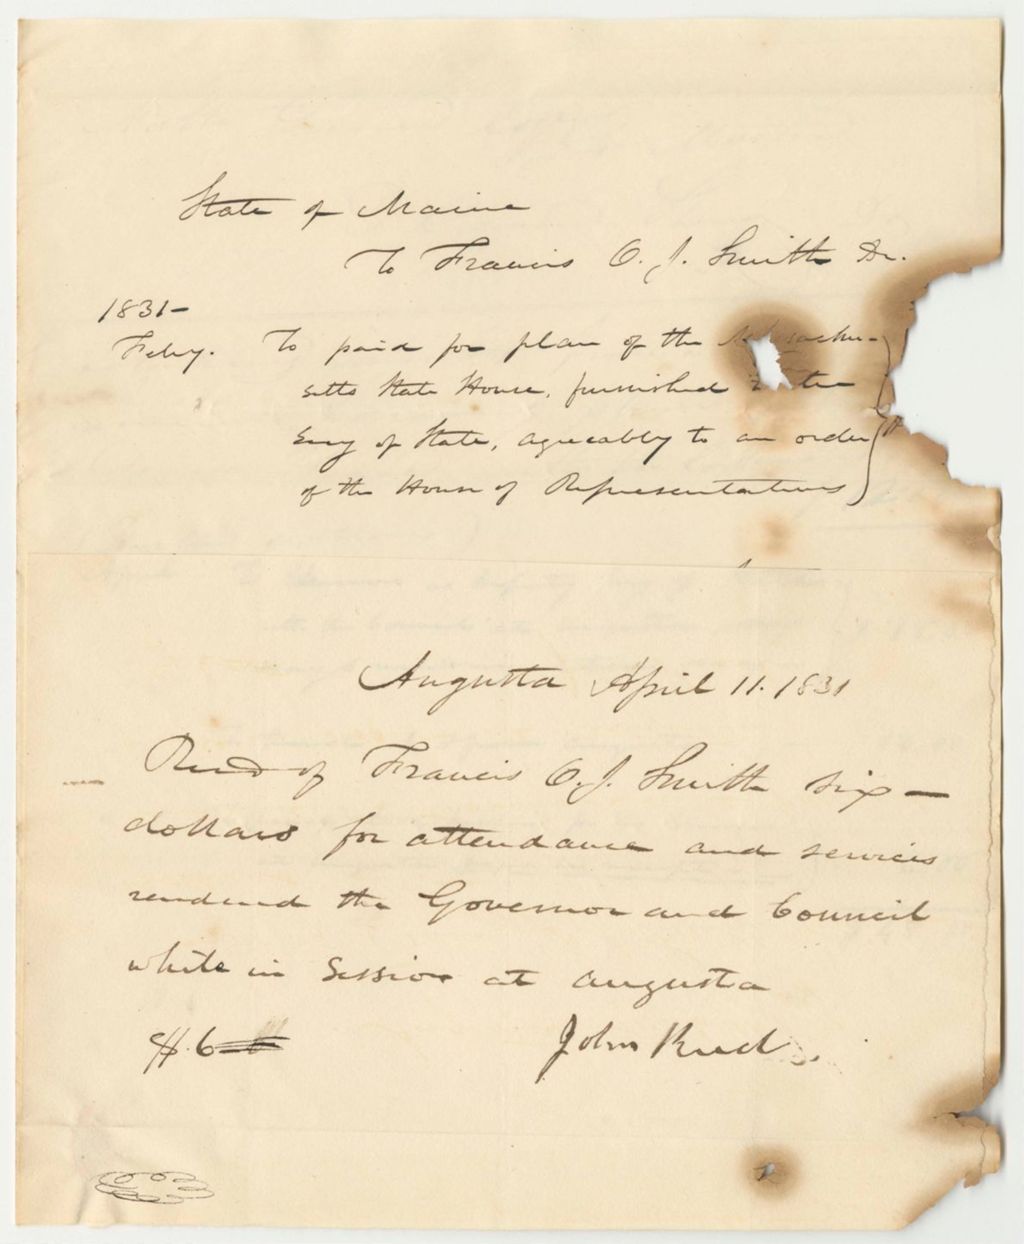 State of Maine
To Francis O. J. Smith Dr.
1831-
Feby. To paid for plan of the Massachu-
setts State House, furnished the
Secy of State, agreeably to an order
of the House of Representatives
Augusta April 11. 1831
Recd of Francis O. J. Smith six -
dollars for attendance and services
rendered the Governor and Council
while in Session at Augusta
$6
John Reed